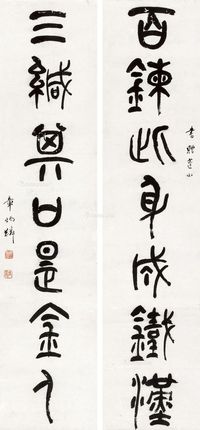 百鍊此身成鐵漢
三緘其口是金人
章炳麟